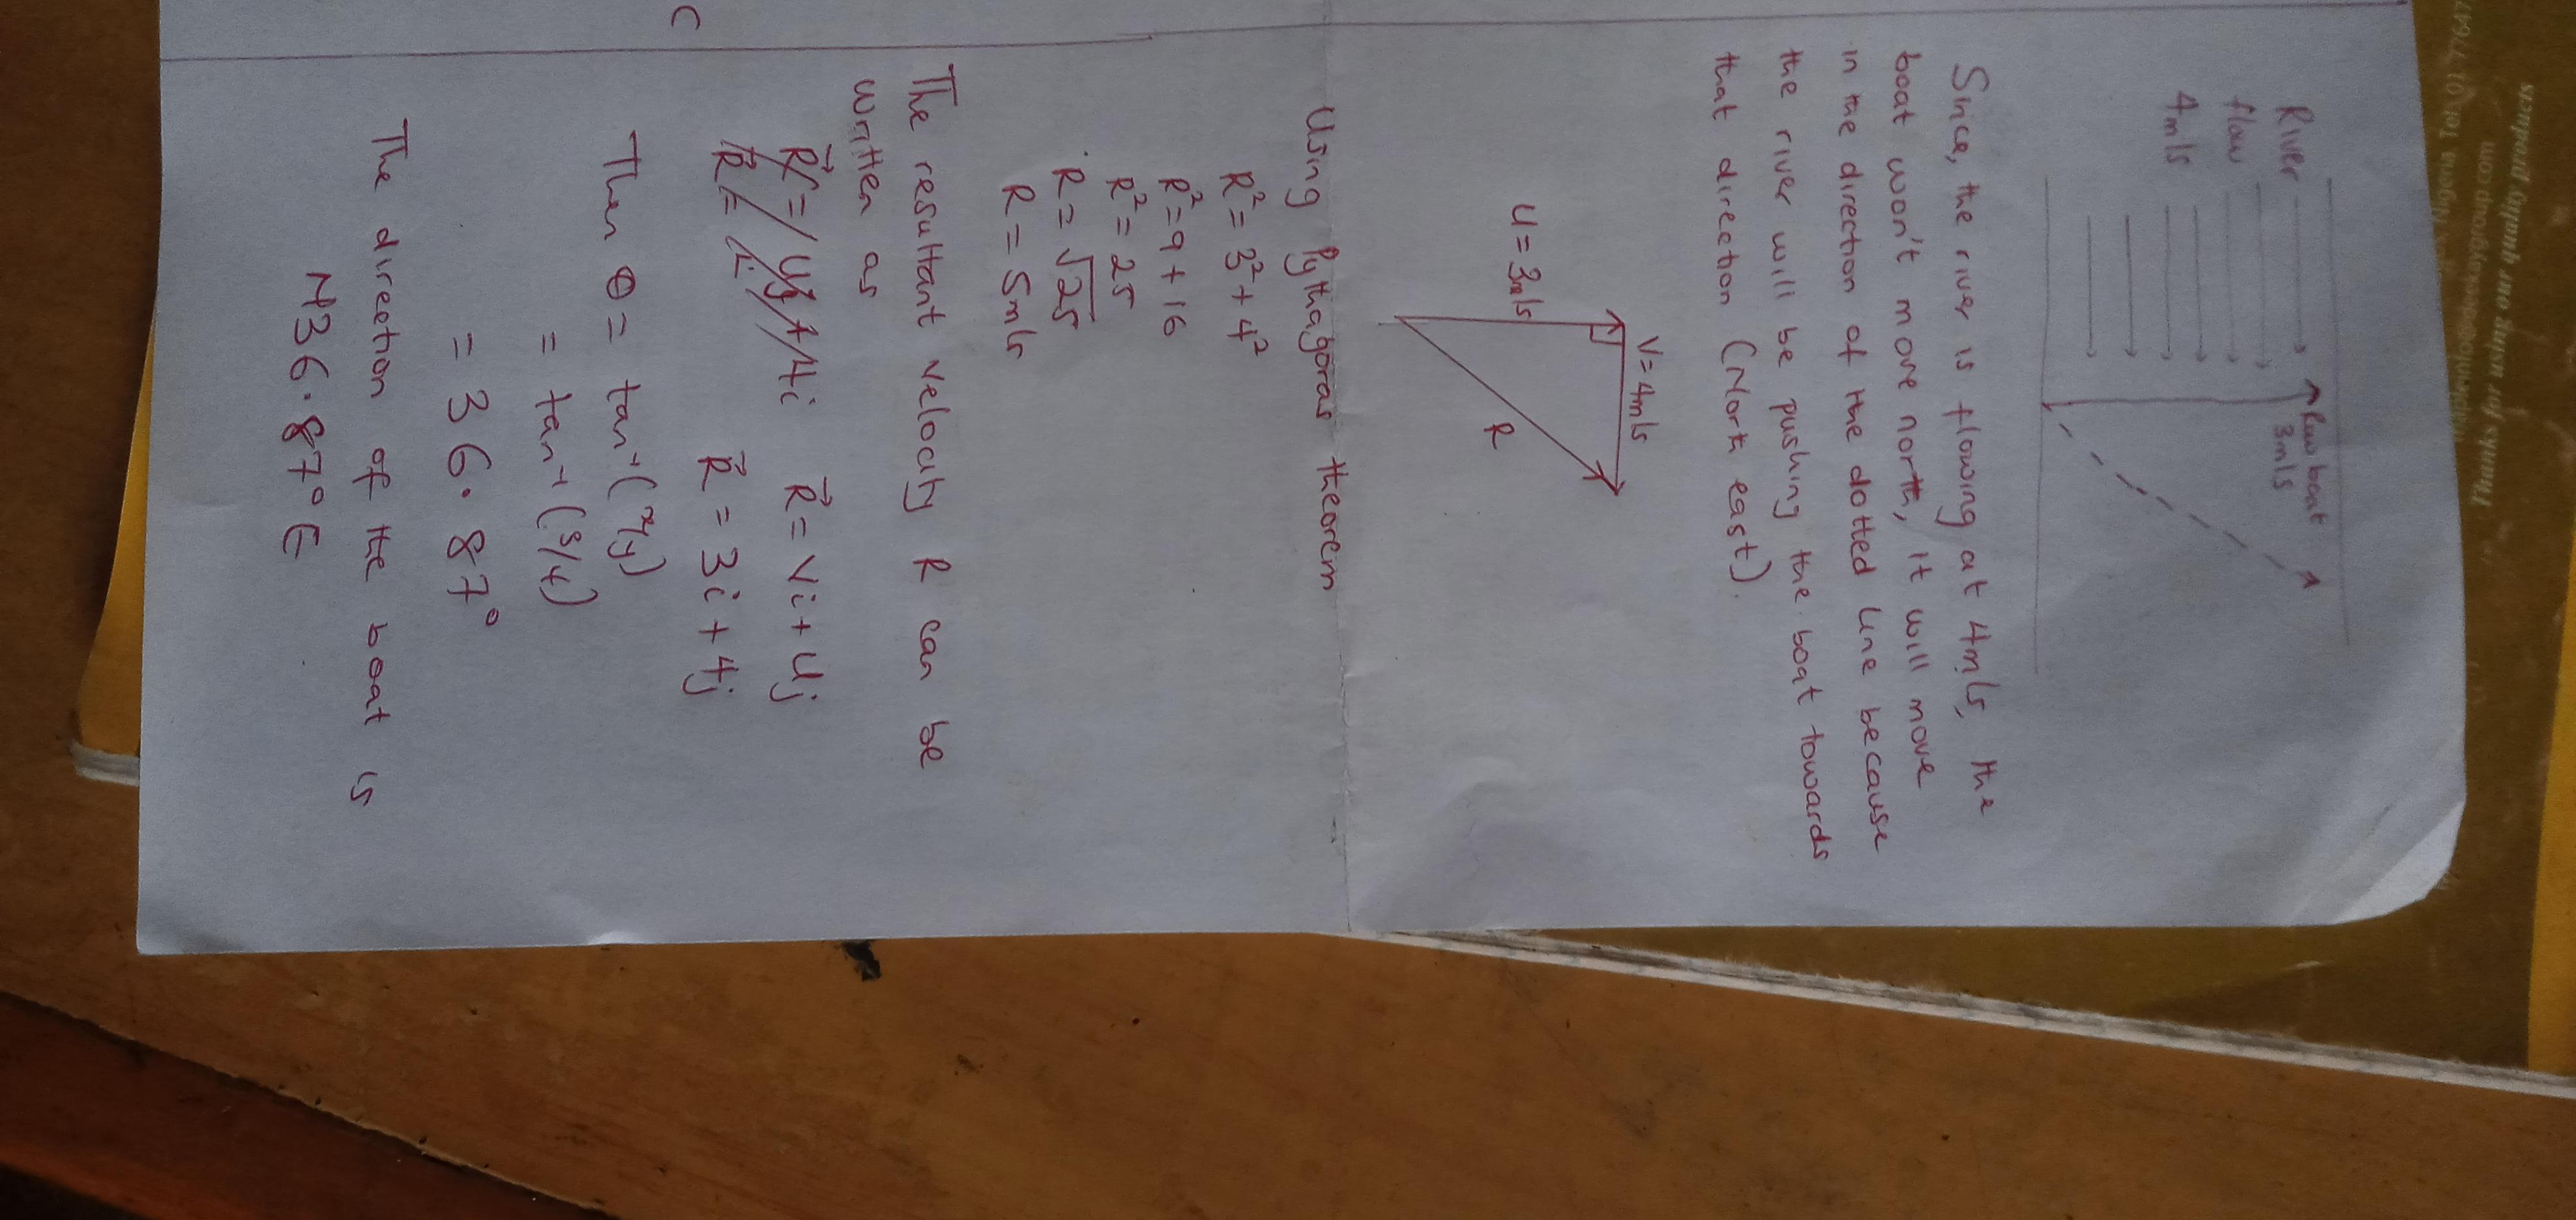 River
flow
4m/s
Row boat
3m/s
Since, the river is flowing at 4m/s, the
boat won't move north, it will move
in the direction of the dotted line because
the river will be pushing the boat towards
that direction (North east).
V = 4m/s
U = 3m/s
R
Using Pythagoras theorem
R² = 3² + 4²
R² = 9 + 16
R² = 25
R = √25
R = 5m/s
The resultant velocity R can be
written as
R⃗ = Uj + 4i R⃗ = Vi + Uj
R⃗ = R⃗ = 3i + 4j
Then θ = tan⁻¹(x/y)
= tan⁻¹(3/4)
= 36.87°
The direction of the boat is
N36.87°E
Thanks for using our quality products